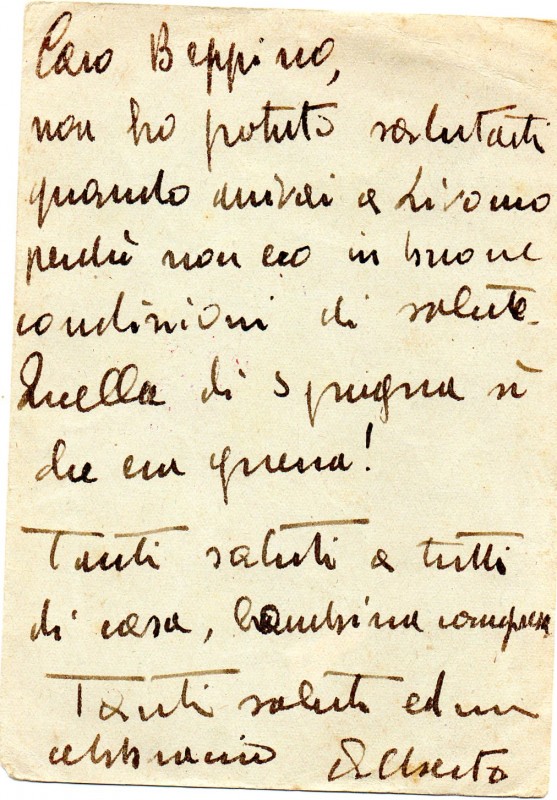 Caro Beppino,
non ho potuto salutarti
quando arrivai a Livorno
perchè non ero in buone
condizioni di salute.
Quella di Spagna sì
che era guerra!
Tanti saluti a tutti
di casa, bambina compresa
Tanti saluti ed un
abbraccio Alberto